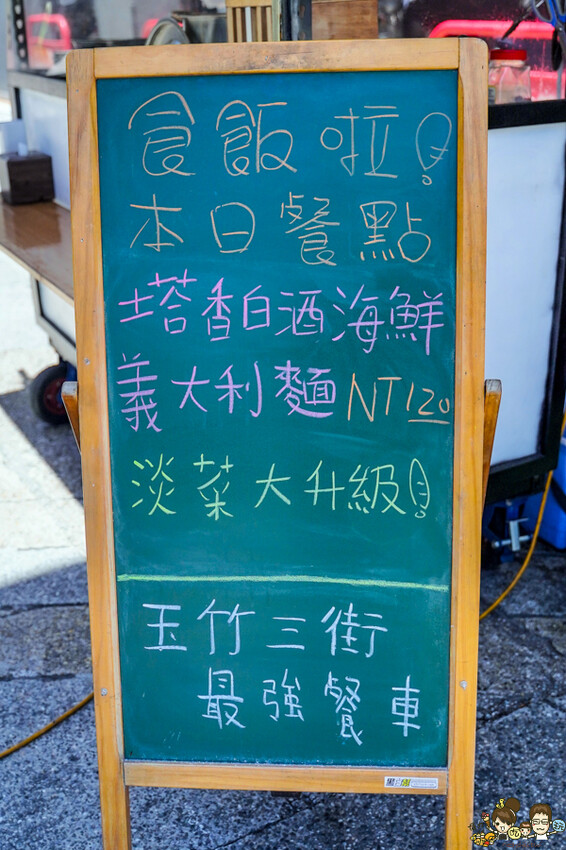 食飯啦!
本日餐點
塔香白酒海鮮
義大利麵 NT120
淡菜大升級!
玉竹三街
最強餐車